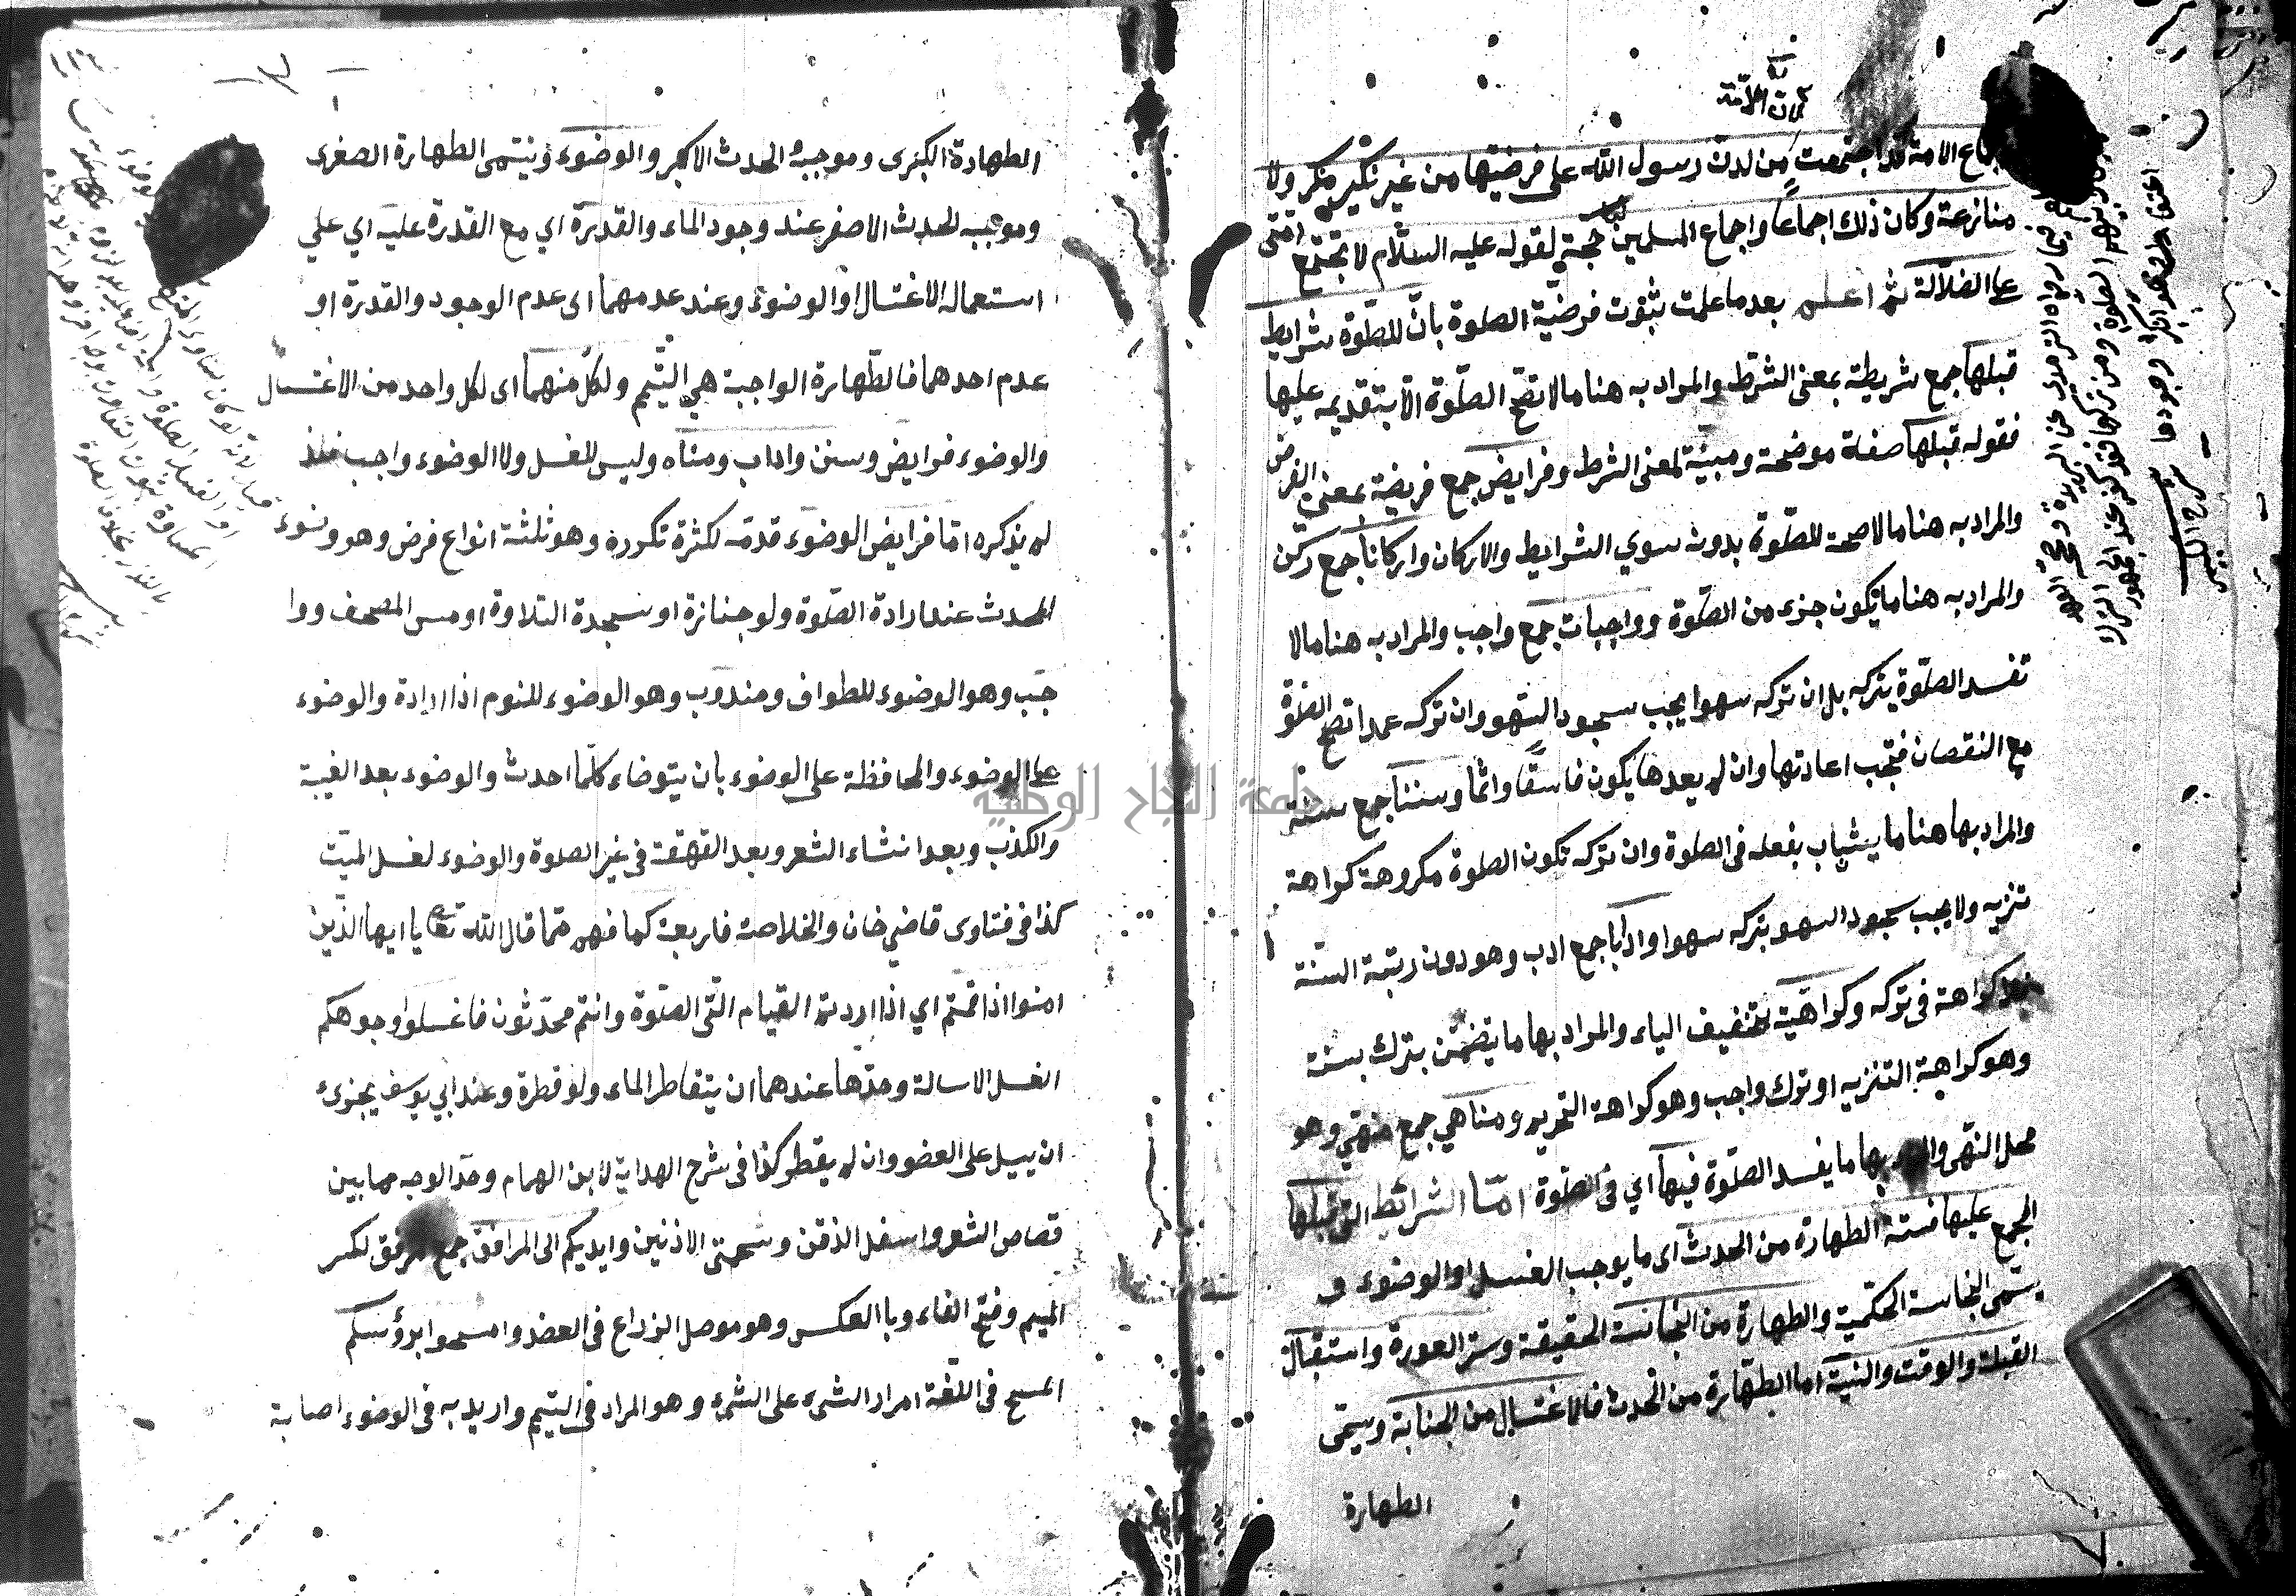 الامة قد اجتمعت من لدن رسول الله على فرضيتها من غير نكير منكر ولا
منازعة وكان ذلك اجماعا واجماع المسلمين حجة لقوله عليه السلام لا تجتمع امتى
على الضلالة ثم اعلم بعد ما علمت ثبوت فرضية الصلوة بان للصلوة شرايط
قبلها جمع شريطة بمعنى الشرط والمراد به هنا ما لا تصح الصلوة الا بتقديمه عليها
فقوله قبلها صفة موضحة ومبينة لمعنى الشرط وفرايض جمع فريضة بمعنى الفرض
والمراد به هنا ما لا صحة للصلوة بدونه سوي الشرايط والاركان واركانا جمع ركن
والمراد به هنا ما يكون جزء من الصلوة وواجبات جمع واجب والمراد به هنا ما لا
تفسد الصلوة بتركه بل ان تركه سهوا يجب سجود السهو وان تركه عمدا تصح الصلوة
مع النقصان فتجب اعادتها وان لم يعدها يكون فاسقا واثما وسننا جمع سنة
والمراد بها هنا ما يثاب بفعله فى الصلوة وان تركه تكون الصلوة مكروهة كراهة
تنزيه ولا يجب سجود السهو بتركه سهوا وادابا جمع ادب وهو دون رتبة السنة
كراهة فى تركه وكراهية بتخفيف الياء والمراد بها ما يتضمن بترك سنة
وهو كراهية التنزيه او ترك واجب وهو كراهة التحريم ومناهي جمع منهي وهو
محل النهى بها ما يفسد الصلوة فيها اي فى الصلوة اما الشرائط التى قبلها
المجمع عليها فستة الطهارة من الحدث اى ما يوجب الغسل او الوضوء و
يسمى النجاسة الحكمية والطهارة من النجاسة الحقيقة وستر العورة واستقبال
القبلة والوقت والنية اما الطهارة من الحدث فالاغتسال من الجنابة ويسمى
الطهارة
الطهارة الكبرى وموجبه الحدث الاكبر والوضوء ويسمى الطهارة الصغرى
وموجبه الحدث الاصغر عند وجود الماء والقدرة اي مع القدرة عليه اي علي
استعماله الاغتسال او الوضوء وعند عدمهما اى عدم الوجود والقدرة او
عدم احدهما فالطهارة الواجبة هي التيمم ولكل منهما اى لكل واحد من الاغتسال
والوضوء فرايض وسنن واداب ومناه وليس للغسل ولا الوضوء واجب
لم يذكره اما فرايض الوضوء قدمه لكثرة تكرره وهو ثلثة انواع فرض وهو وضوء
المحدث عند ارادة الصلوة ولو جنازة او سجدة التلاوة او مس المصحف ووا
جب وهو الوضوء للطواف ومندوب وهو الوضوء للنوم اذا ارادة والوضوء
على الوضوء والمحافظة على الوضوء بان يتوضاء كلما احدث والوضوء بعد الغيبة
والكذب وبعد انشاء الشعر وبعد القهقهة فى غير الصلوة والوضوء لغسل الميت
كذا فى فتاوى قاضي خان والخلاصة فاربعة كما فهم مما قال الله تعالى يا ايها الذين
امنوا اذا قمتم اي اذا اردتم القيام الى الصلوة وانتم محدثون فاغسلوا وجوهكم
الغسل الاسالة وحدها عندهما ان يتقاطر الماء ولو قطرة وعند ابي يوسف يجزئ
ان يسيل على العضو وان لم يقطر كذا فى شرح الهداية لابن الهمام وحد الوجه مما بين
قصاص الشعر واسفل الذقن وشحمتى الاذنين وايديكم الى المرافق جمع مرفق لكسر
الميم وفتح الفاء وبا العكس وهو موصل الزراع فى العضد وامسحوا برؤسكم
المسح فى اللغة امرار الشئ على الشئ وهو المراد فى التيمم واريد به فى الوضوء اصابة
جامعة النجاح الوطنية